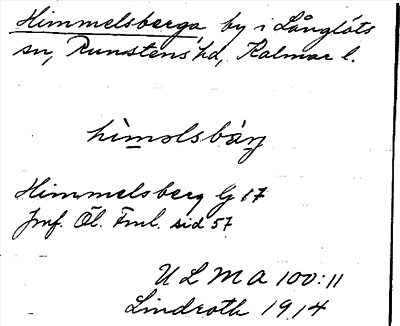 Himmelsberga by i Långlöts
sn, Runstens hd, Kalmar l.
hìmolsbàrj
Himmelsberg G 17
Jmf. Öl. Fml. sid 57
ULMA 100:11
Lindroth 1914